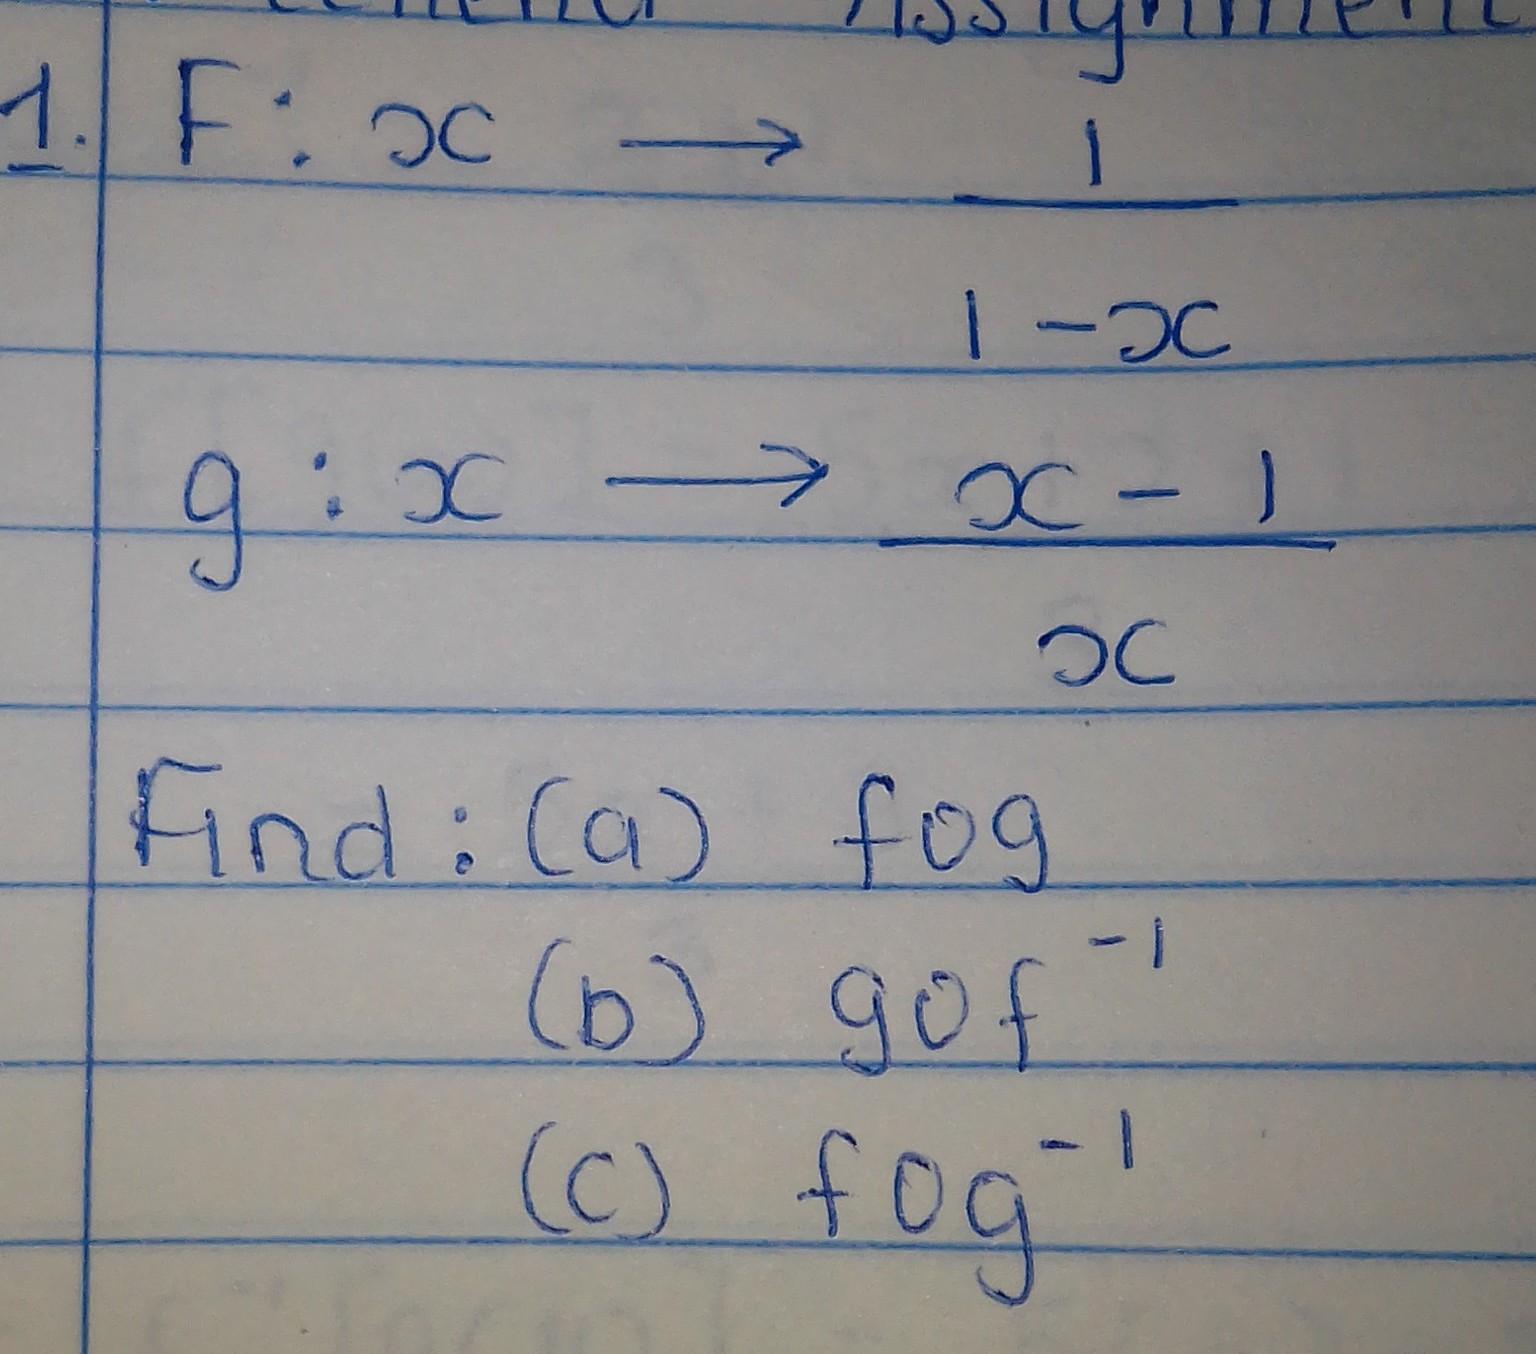 Assignment
1. F : x → 1
1 - x
g : x → x - 1
x
Find : (a) fog
(b) gof⁻¹
(c) fog⁻¹